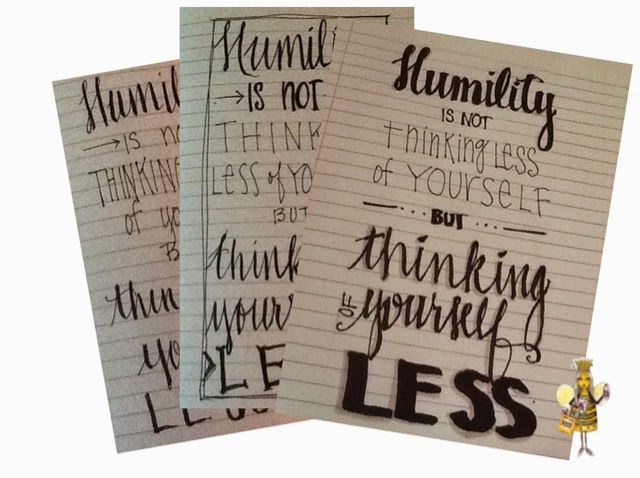 Humil
IS NO
THINKING
of yo
B
thin
yo
LES
Humili
IS NOT
THINK
LESS of YO
BUT
think
your
LE
Humility
IS NOT
thinking LESS
of YOURSELF
BUT
thinking
OF yourself
LESS